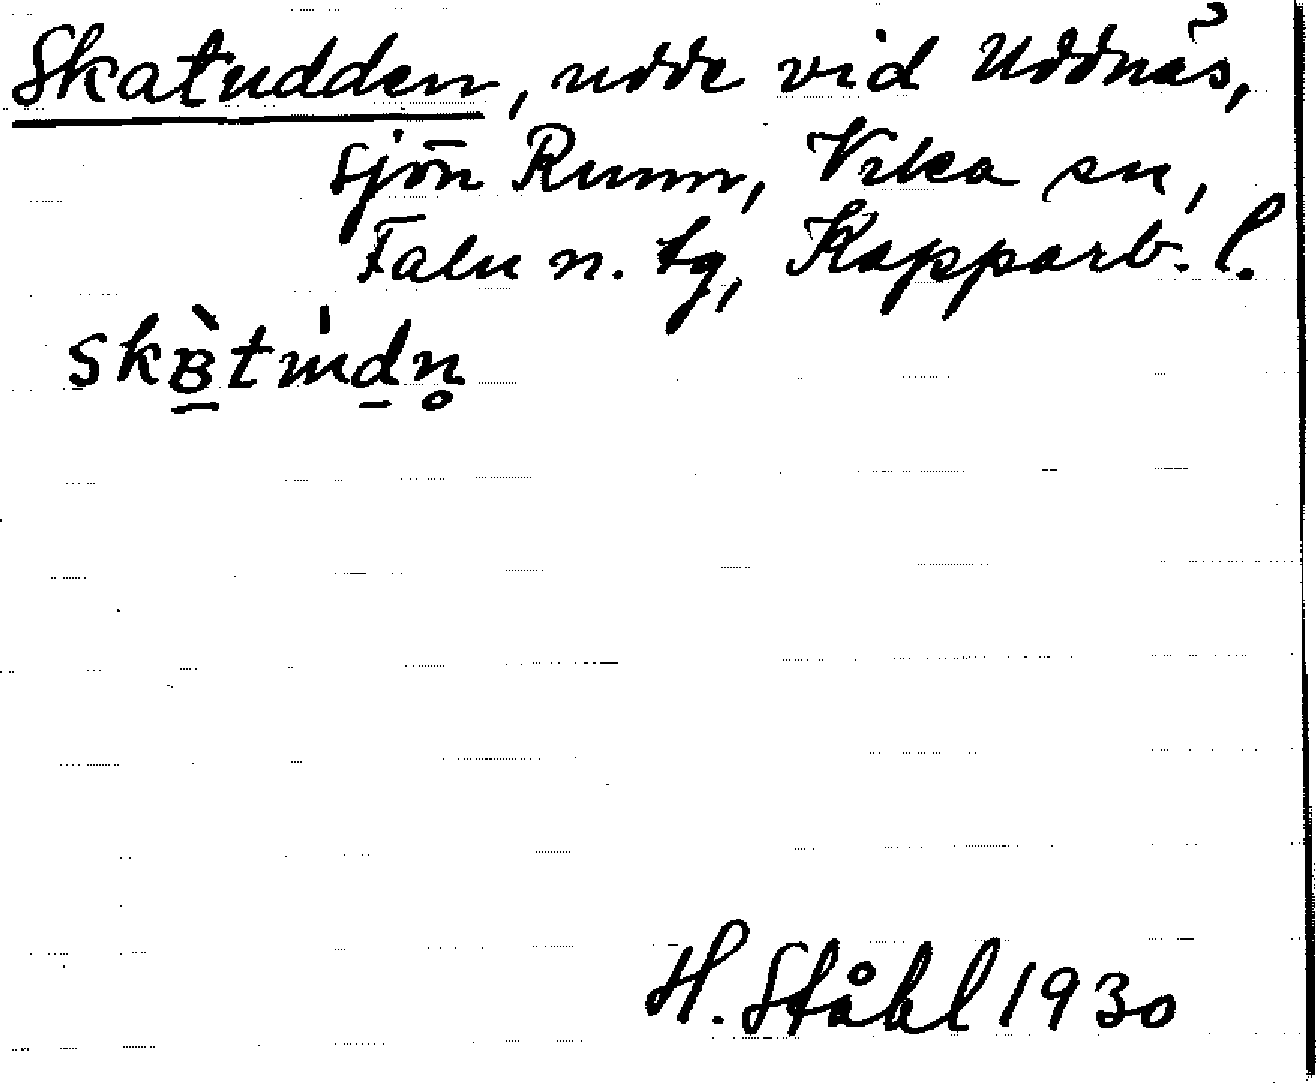 Skatudden, udde vid Uddnäs,
sjön Runn, Vika sn,
Falu n. tg, Kopparb. l.
H. Ståhl 1930